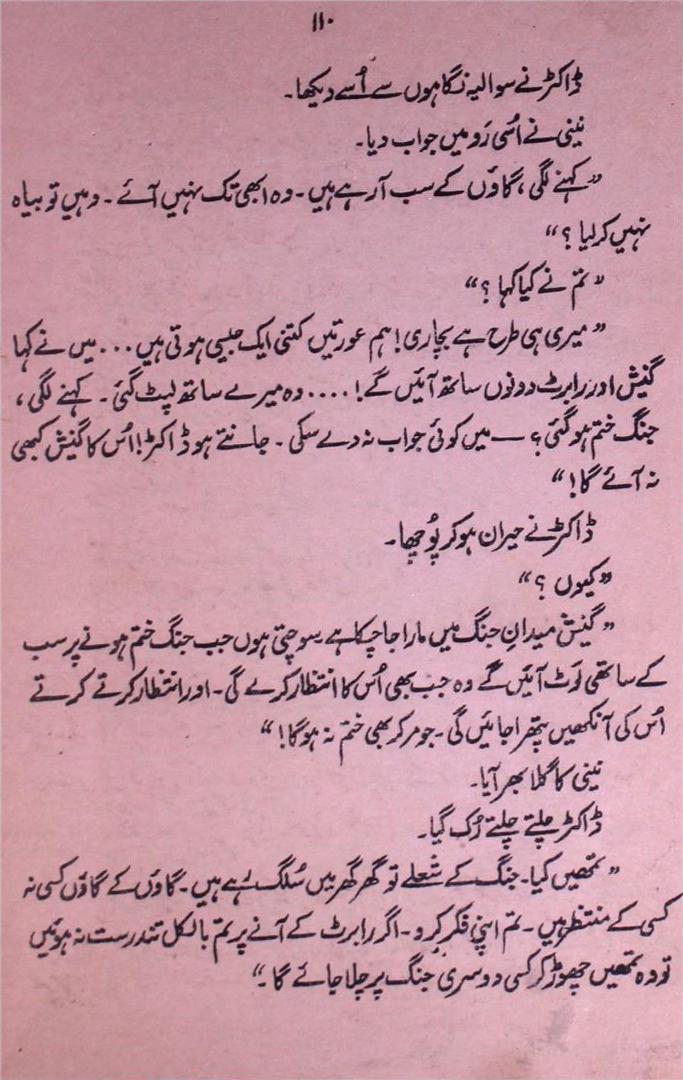 ۱۱۰
ڈاکٹر نے سوالیہ نگاہوں سے اُسے دیکھا۔
نینی نے اُسی رَو میں جواب دیا۔
”کہنے لگی، گاؤں کے سب آرہے ہیں۔ وہ ابھی تک نہیں آئے۔ وہیں تو بیاہ
نہیں کرلیا؟“
”تم نے کیا کہا؟“
”میری ہی طرح ہے بچاری! ہم عورتیں کتنی ایک جیسی ہوتی ہیں... میں نے کہا
گنیش اور رابرٹ دونوں ساتھ آئیں گے!.... وہ میرے ساتھ لپٹ گئی۔ کہنے لگی،
جنگ ختم ہوگئی؟ — میں کوئی جواب نہ دے سکی۔ جانتے ہو ڈاکٹر! اُس کا گنیش کبھی
نہ آئے گا!“
ڈاکٹر نے حیران ہوکر پُوچھا۔
”کیوں؟“
”گنیش میدانِ جنگ میں مارا جاچکا ہے سوچتی ہوں جب جنگ ختم ہونے پر سب
کے ساتھی لَوٹ آئیں گے وہ جب بھی اُس کا انتظار کرے گی۔ اور انتظار کرتے کرتے
اُس کی آنکھیں پتھرا جائیں گی۔ جو مرکر بھی ختم نہ ہوگا!“
نینی کا گلا بھر آیا۔
ڈاکٹر چلتے چلتے رُک گیا۔
”تمھیں کیا۔ جنگ کے شعلے تو گھر گھر میں سُلگ رہے ہیں۔ گاؤں کے گاؤں کسی نہ
کسی کے منتظر ہیں۔ تم اپنی فکر کرو۔ اگر رابرٹ کے آنے پر تم بالکل تندرست نہ ہوئیں
تو وہ تمھیں چھوڑ کر کسی دوسری جنگ پر چلا جائے گا۔“